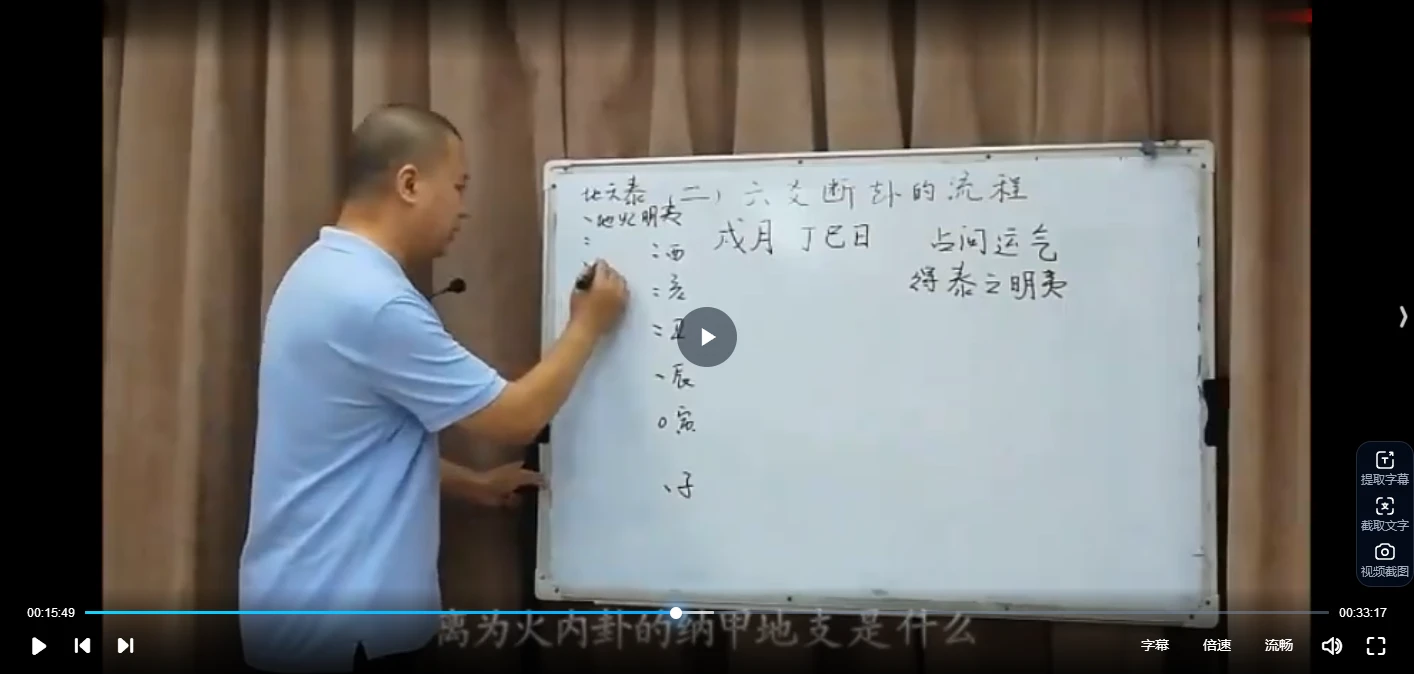 地天泰
二）六爻断卦的流程
地火明夷
戌月 丁巳日
占问运气
得泰之明夷
酉
亥
丑
辰
寅
子
离为火内卦的纳甲地支是什么
提取字幕
截取文字
视频截图
00:15:49
00:33:17
字幕
倍速
流畅